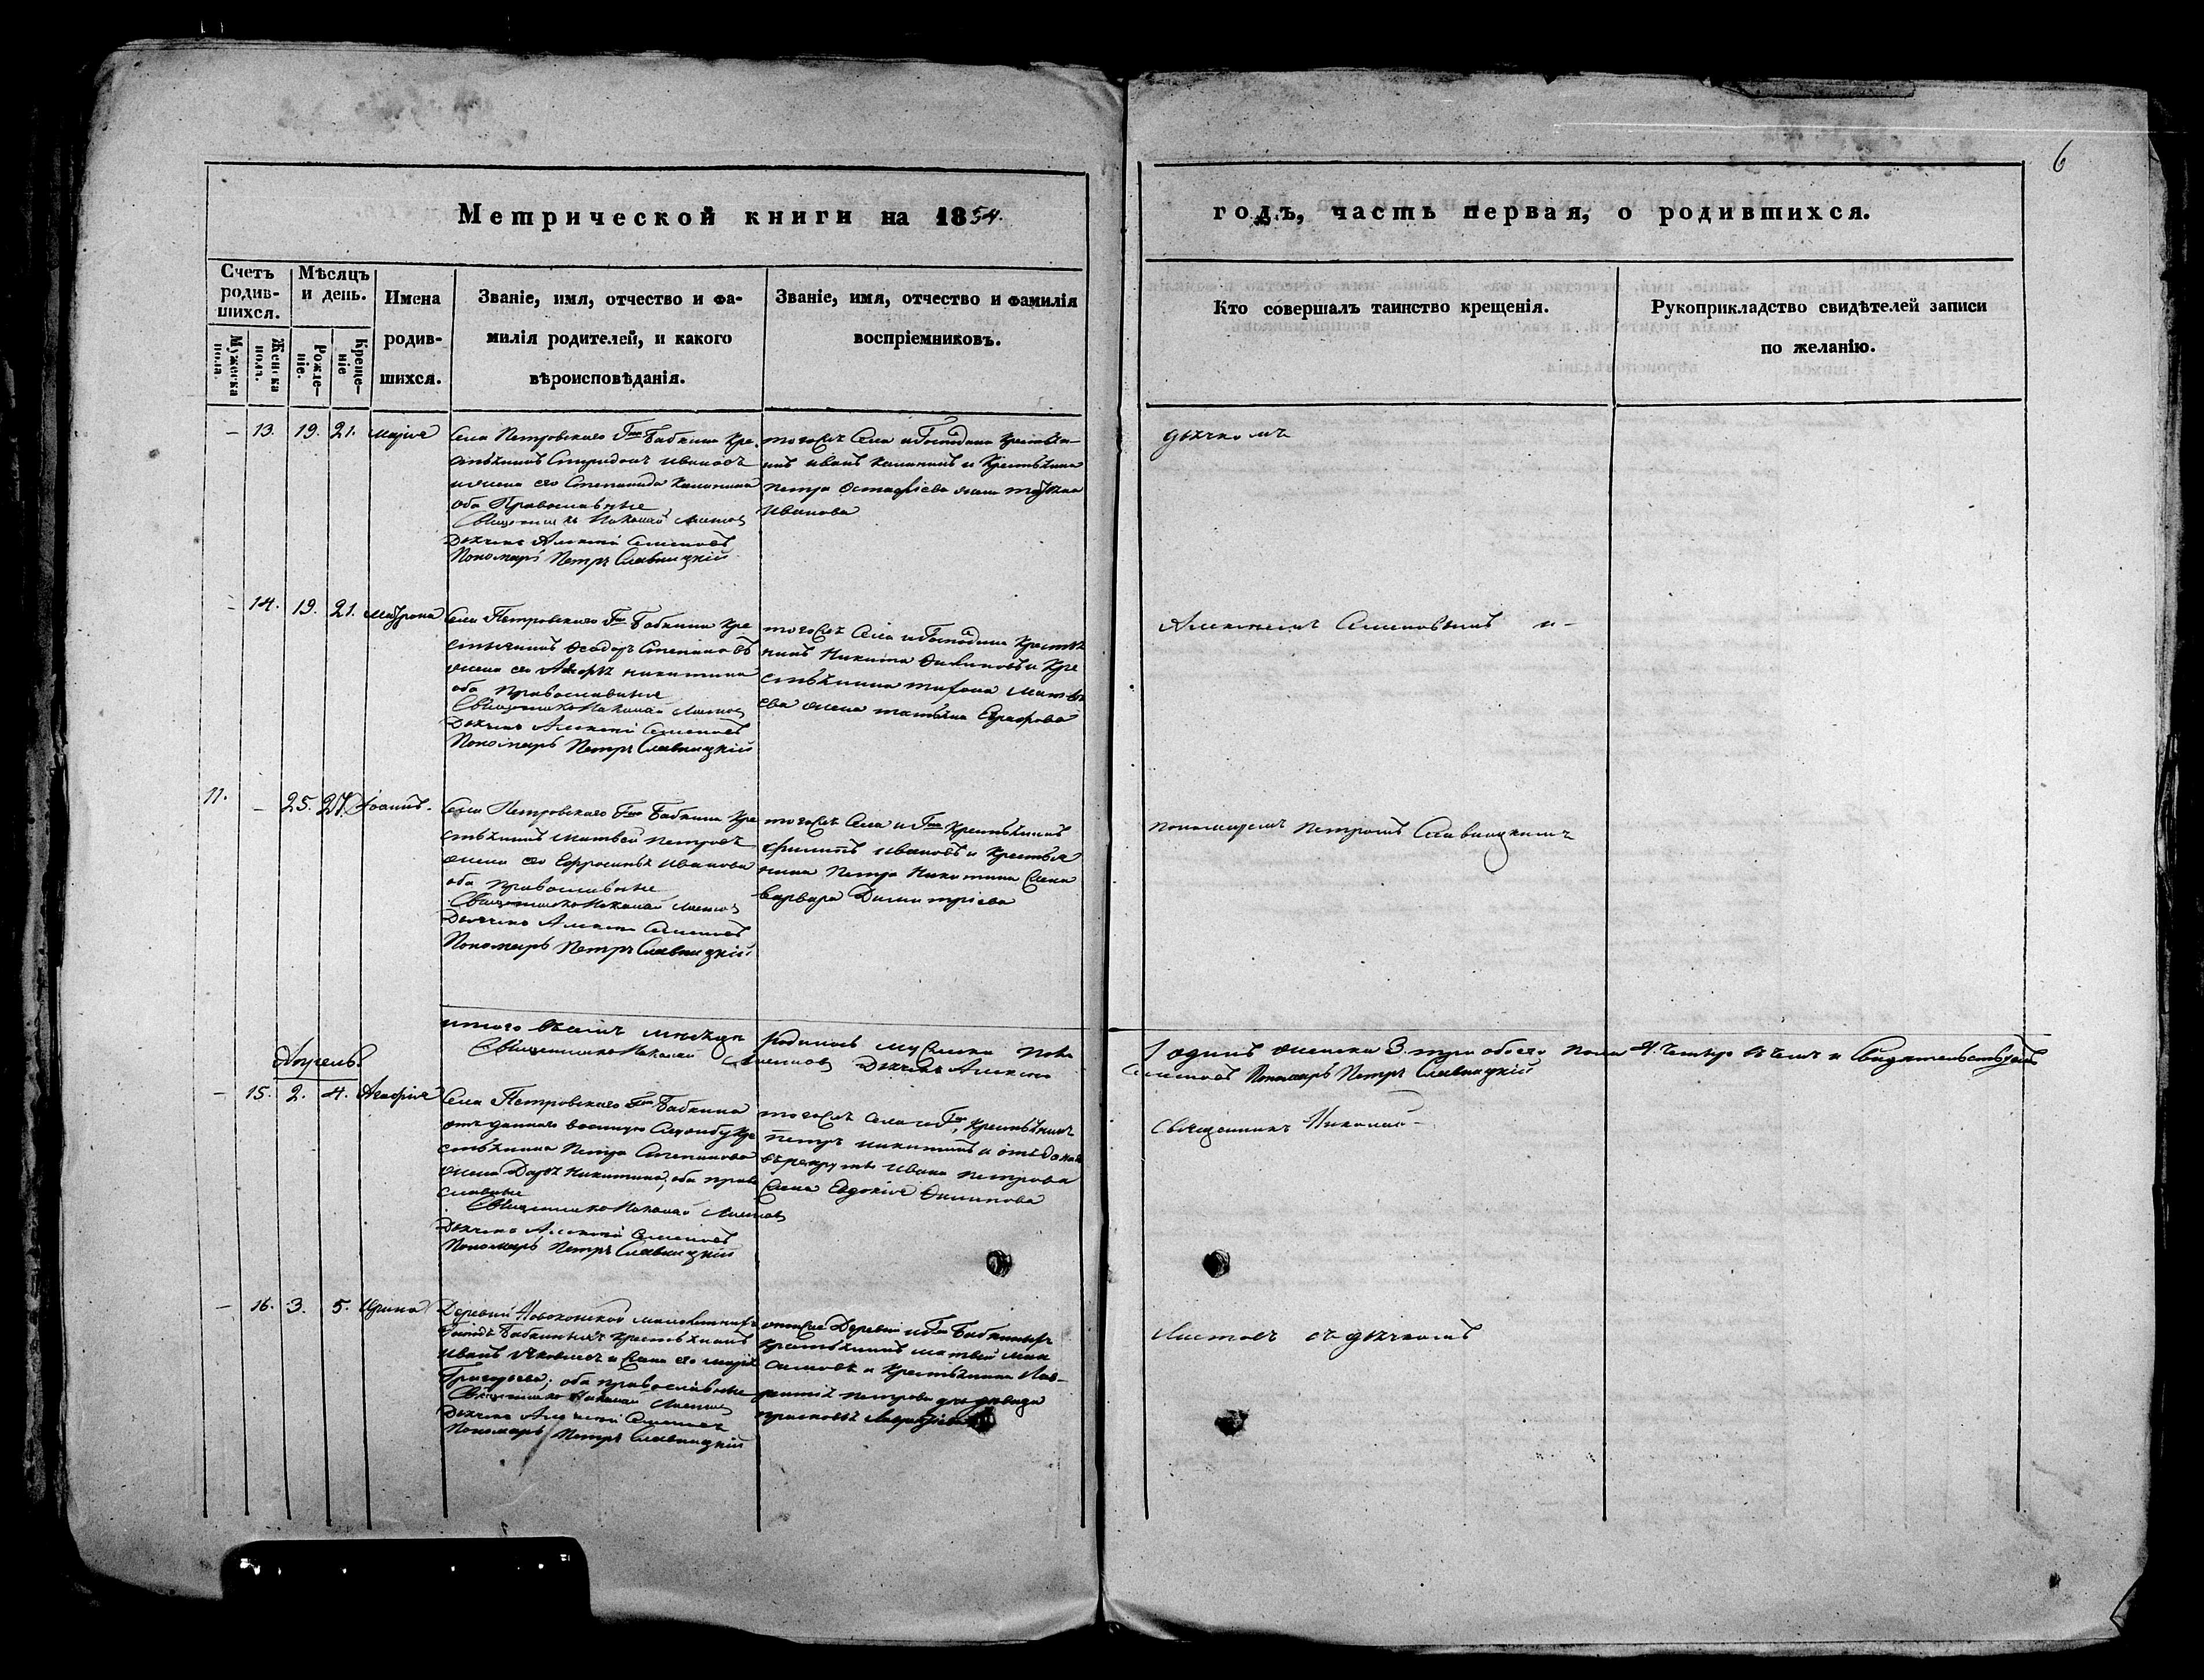 6
Метрической книги на 1854.
годъ, часть первая, о родившихся.
Счетъ родив-шихся.
Мужеска пола.
Женска пола.
Мѣсяцъ и день.
Рожде-ніе.
Креще-ніе
Имена родив-шихся.
Званіе, имя, отчество и фа-
милія родителей, и какого
вѣроисповѣданія.
Званіе, имя, отчество и фамилія
воспріемниковъ.
Кто совершалъ таинство крещенія.
Рукоприкладство свидѣтелей записи
по желанію.
– 13. 19. 21. Марія
Села Петровскаго Гна Бабкина кре
стьянинъ Спиридонъ Ивановъ
и жена его Степанида Калинина
оба Православные
Священникъ Николай Листовъ
Дьячекъ Алексѣй Семеновъ
Пономарь Петръ Славницкій
тогожъ села и Господина крестья-
нинъ Иванъ Калининъ и крестьянина
Петра Остафіева жена
Иванова
дьячкомъ
– 14. 19. 21. Матрона
Села Петровскаго Гна Бабкина кре
стьянинъ Феодоръ Степановъ
жена его Никитина
оба православные
Священникъ Николай Листовъ
Дьячекъ Алексѣй Семеновъ
Пономарь Петръ Славницкій
тогожъ села и Господина крестья
нинъ Никита Филиповъ и кре
стьянина Тихона Матвѣ
ева жена Татьяна Евграфова
Алексѣемъ Семеновымъ и –
11. – 25. 27. Іоаннъ.
Села Петровскаго Гна Бабкина кре
стьянинъ Матвей Петровъ
жена его Ефросинья Иванова
оба православные
Священникъ Николай Листовъ
Дьячекъ Алексѣй Семеновъ
Пономарь Петръ Славницкій
тогожъ села и Гна крестьянинъ
Филипъ Ивановъ и крестья
нина Петра Никитина жена
Варвара Димитріева
пономаремъ Петромъ Славницкимъ
итого въ семъ мѣсяцѣ родилось мужеска пола
1 одинъ женска 3. три обоего пола 4. четыре въ чемъ и свидѣтельствуемъ
Священникъ Николай Листовъ Дьячекъ Алексѣй
Семеновъ Пономарь Петръ Славницкій
Апрель.
– 15. 2. 4. Агафія
Села Петровскаго Гна Бабкина
отданнаго въ военную службу кре
стьянина Петра Степанова
жена Дарья Никитина, оба право
славные
Священникъ Николай Листовъ
Дьячекъ Алексѣй Семеновъ
Пономарь Петръ Славницкій
тогожъ села и Гна крестьянинъ
Петръ Никитинъ и отданнаго
въ рекруты Ивана Петрова
жена Евдокія Филипова
Священникъ Николай –
– 16. 3. 5. Ирина
Деревни
Бабкиныхъ крестьянинъ
Иванъ Яковлевъ и жена его Марія
Григорьева; оба православные
Священникъ Николай Листовъ
Дьячекъ Алексѣй Семеновъ
Пономарь Петръ Славницкій
тойже Деревни и Гна Бабкиныхъ
крестьянинъ Матвей Мак
симовъ и крестьянина Лав-
рентія Петрова
Листовъ съ дьячкомъ